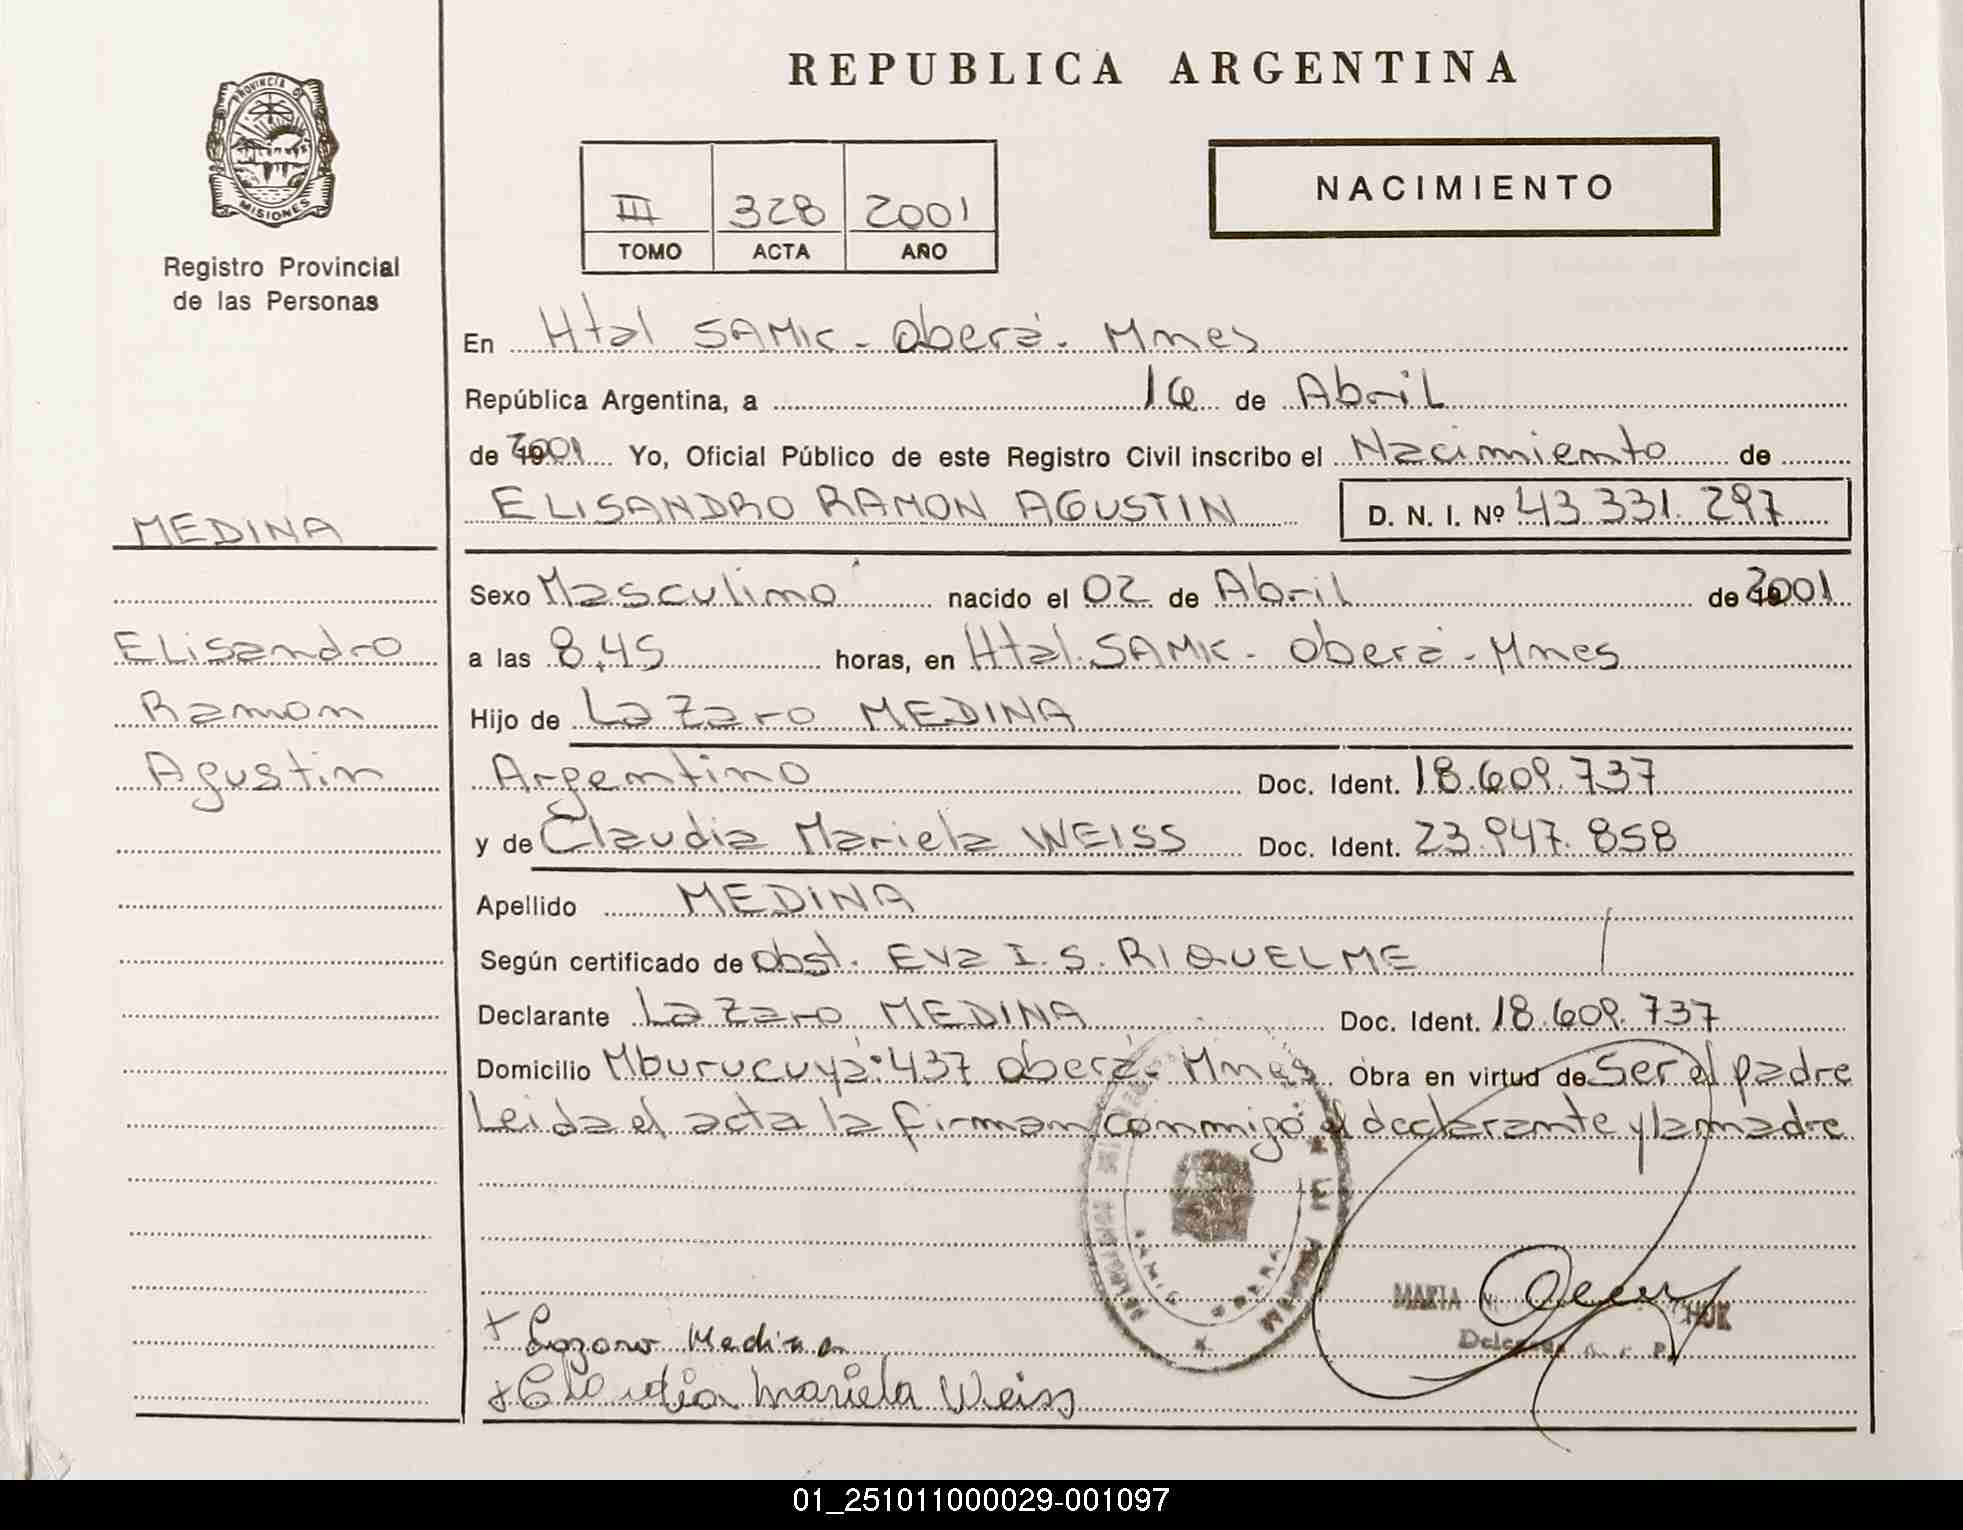 REPUBLICA ARGENTINA
PROVINCIA DE
MISIONES
Registro Provincial
de las Personas
III 328 2001
TOMO ACTA AÑO
NACIMIENTO
En Htal SAMIC - Oberá - Mnes
República Argentina, a 16 de Abril
de 2001 Yo, Oficial Público de este Registro Civil inscribo el Nacimiento de
MEDINA
ELISANDRO RAMON AGUSTIN D. N. I. Nº 43.331.297
Sexo Masculino nacido el 02 de Abril de 2001
Elisandro
a las 8,45 horas, en Htal. SAMIC - Oberá - Mnes
Ramon
Hijo de Lazaro MEDINA
Agustin
Argentino Doc. Ident. 18.609.737
y de Claudia Mariela WEISS Doc. Ident. 23.947.858
Apellido MEDINA
Según certificado de obst. Eva I. S. RIQUELME
Declarante Lazaro MEDINA Doc. Ident. 18.609.737
Domicilio Mburucuyá: 437 Oberá - Mnes Obra en virtud de Ser el padre
Leida el acta la firman conmigo el declarante y la madre
MARIA
+ Lazaro Medina
+ Claudia Mariela Weiss
01_251011000029-001097